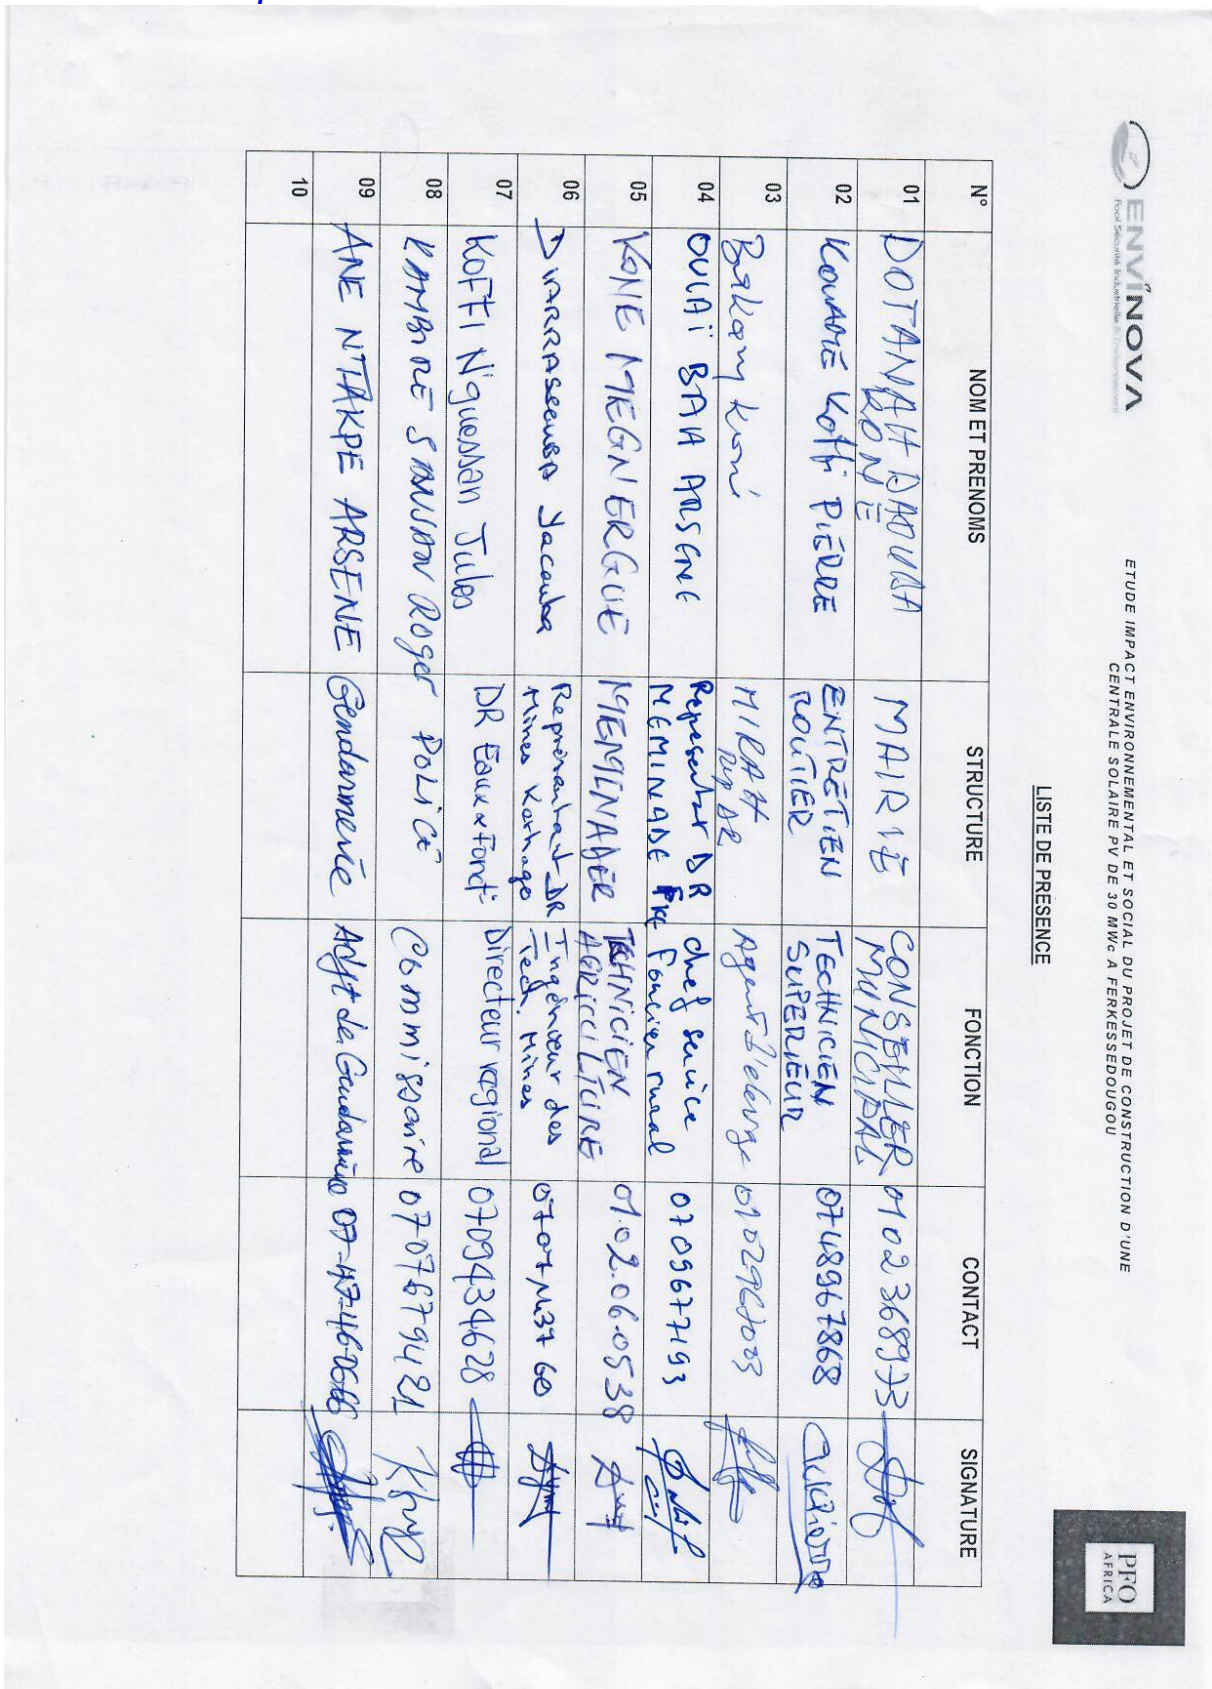 ENVINOVA
Pool Sécurité Industrielle & Environnement
ETUDE IMPACT ENVIRONNEMENTAL ET SOCIAL DU PROJET DE CONSTRUCTION D'UNE
CENTRALE SOLAIRE PV DE 30 MWc A FERKESSEDOUGOU
PFO
AFRICA
LISTE DE PRESENCE
N° NOM ET PRENOMS STRUCTURE FONCTION CONTACT SIGNATURE
01 DOTANAH DAOUDA KONE MAIRIE CONSEILLER MUNICIPAL 0102368973
02 KOUAME Koffi PIERRE ENTRETIEN ROUTIER TECHNICIEN SUPERIEUR 0748967868
03 Bakary koné MIRAH Agent d'elevage
04 OULAÏ BAH ARSENE Representant DR MEMINADE Fke chef service Foncier rural 0709677193
05 KONE MEGNERGUE MEMINADER TECHNICIEN AGRICULTURE 01.02.06.05.38
06 DIARRASSOUBA Yacouba Représentant DR Mines Korhogo Ingénieur des Tech. Mines
07 KOFFI N'guessan Jules DR Eaux et Forêt Directeur regional 0709434628
08 KAMBIRE Roger POLICE Commissaire 0707679421
09 ANE NTAKPE ARSENE Gendarmerie Adjt de Gendarmerie
10